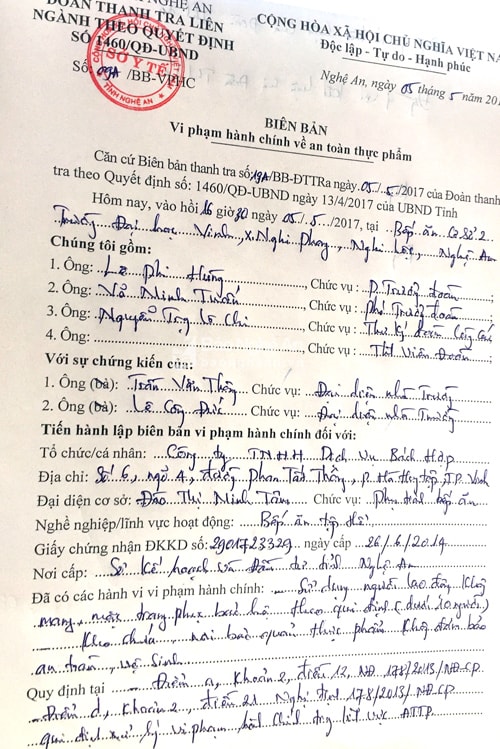 NGHỆ AN
ĐOÀN THANH TRA LIÊN
NGÀNH THEO QUYẾT ĐỊNH
SỐ 1460/QĐ-UBND
Số: 09A /BB-VPHC
SỞ Y TẾ
TỈNH NGHỆ AN
CỘNG HÒA XÃ HỘI CHỦ NGHĨA VIỆT NA
Độc lập - Tự do - Hạnh phúc
Nghệ An, ngày 05 tháng 5 năm 201
BIÊN BẢN
Vi phạm hành chính về an toàn thực phẩm
Căn cứ Biên bản thanh tra số 19A/BB-ĐTTRa ngày 05/5/2017 của Đoàn thanh
tra theo Quyết định số: 1460/QĐ-UBND ngày 13/4/2017 của UBND Tỉnh
Hôm nay, vào hồi 16 giờ 30 ngày 05/5/2017, tại Bếp ăn Cơ Sở 2
Trường Đại học Vinh, x. Nghi Phong, Nghi Lộc, Nghệ An
Chúng tôi gồm:
1. Ông: Lê Phi Hùng, Chức vụ: P. Trưởng đoàn
2. Ông: Võ Minh Tuấn, Chức vụ: Phó Trưởng đoàn
3. Ông: Nguyễn Trọng Lê Chi, Chức vụ: Thư ký đoàn
4. Ông:, Chức vụ: Viên Đoàn
Với sự chứng kiến của:
1. Ông (bà): Trần Văn Thông Chức vụ: Đại diện nhà Trường
2. Ông (bà): Lê Công Đức Chức vụ: Đại diện nhà Trường
Tiến hành lập biên bản vi phạm hành chính đối với:
Tổ chức/cá nhân: Công ty TNHH Dịch vụ Bách Hợp
Địa chỉ: Số 6, ngõ 4, đường Phan Tất Thông, P. Hà Huy Tập, TP. Vinh
Đại diện cơ sở: Đào Thị Minh Tâm Chức vụ: bếp ăn
Nghề nghiệp/lĩnh vực hoạt động: Bếp ăn tập thể
Giấy chứng nhận ĐKKD số: 2901723329 ngày cấp 26/6/2014
Nơi cấp: Sở Kế hoạch và Đầu tư tỉnh Nghệ An
Đã có các hành vi vi phạm hành chính: Sử dụng người lao động không
mang, mặc trang phục bảo hộ theo qui định (dưới 10 người)
Kho chứa, nơi bảo quản thực phẩm không đảm bảo
an toàn, vệ sinh
Quy định tại Điểm a, Khoản 2, điều 12, NĐ 178/2013/NĐ-CP
Điểm d, Khoản 2, điều 21 Nghị định 178/2013/NĐ-CP
qui định xử lý vi phạm hành chính trong lĩnh vực ATTP